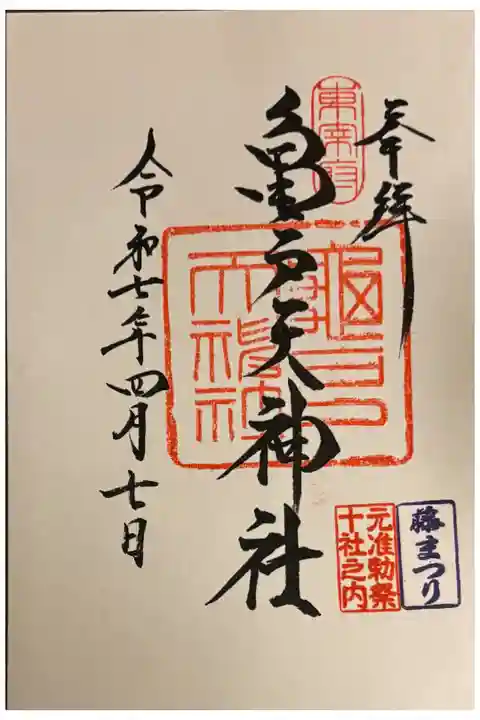 奉拝
東宰府
亀戸天神社
亀戸天神社
令和七年四月七日
藤まつり
元准勅祭
十社之内